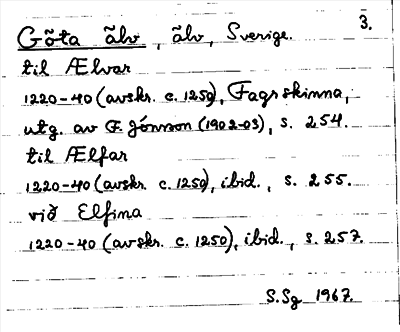 3.
Göta älv, älv, Sverige.
til Ælvar
1220-40 (avskr. c. 1250), Fagrskinna,
utg. av F. Jónsson (1902-03), s. 254.
til Ælfar
1220-40 (avskr. c. 1250), ibid., s. 255.
við Elfina
1220-40 (avskr. c. 1250), ibid., s. 257.
S.Sg 1967.